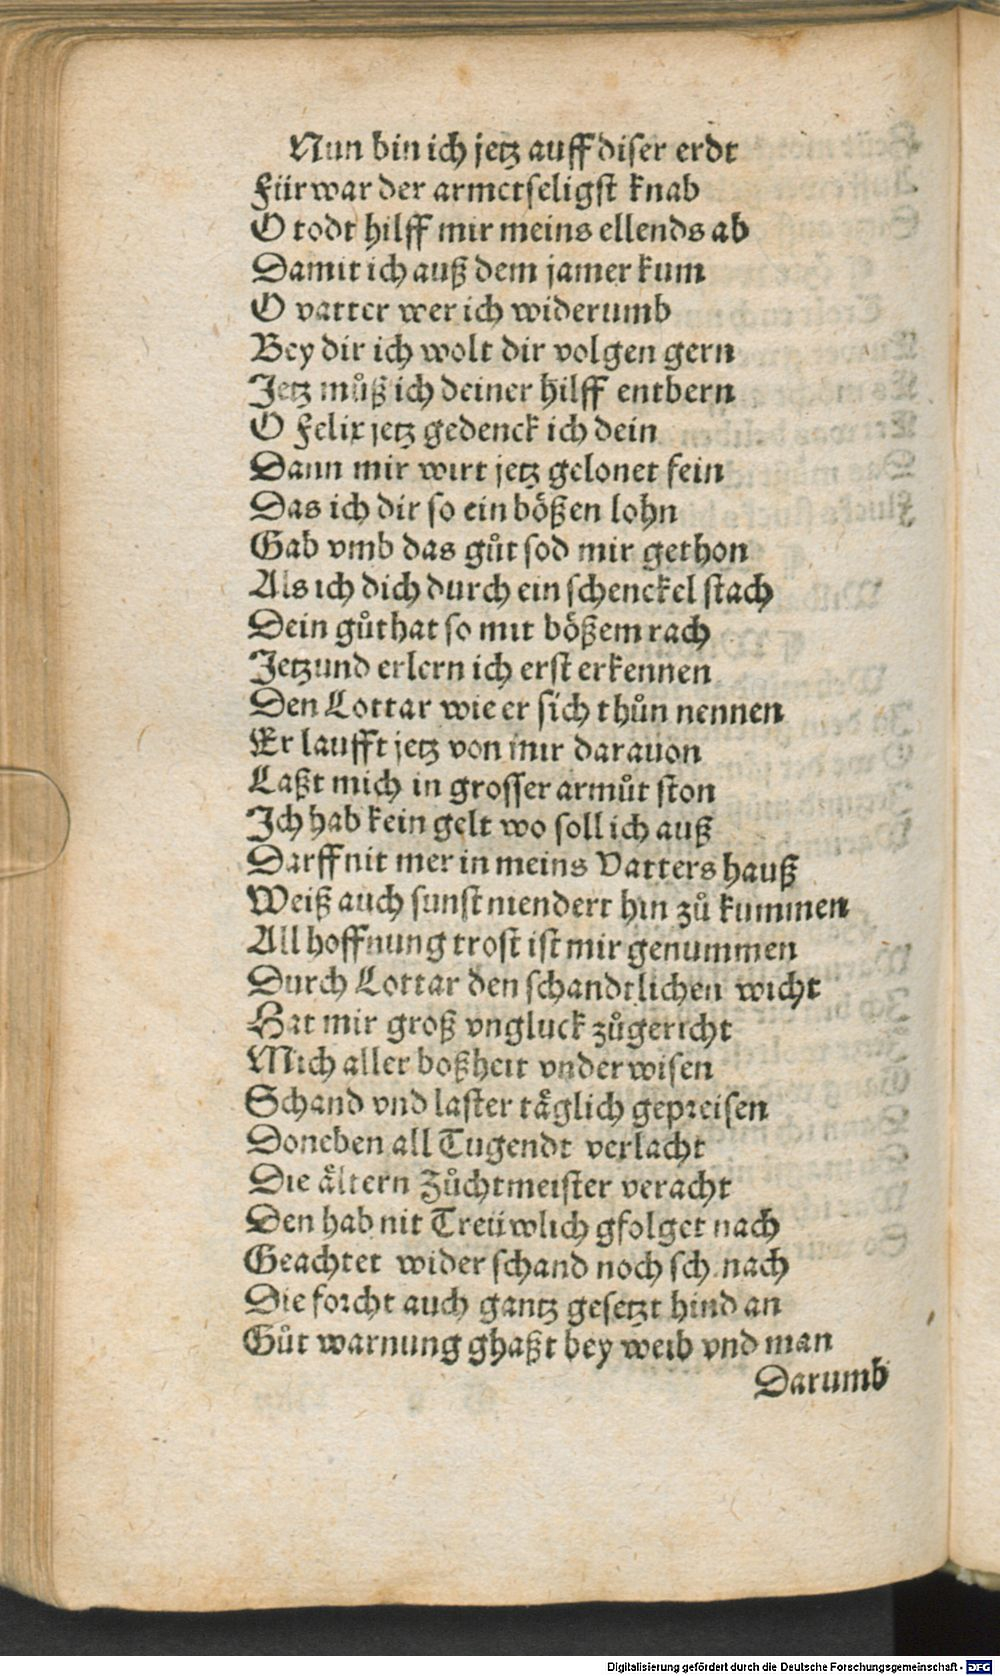 Nun bin ich jetz auff diser erdt
Für war der armetseligst knab
O todt hilff mir meins ellends ab
Damit ich auß dem jamer kum
O vatter wer ich widerumb
Bey dir ich wolt dir volgen gern
Jetz můß ich deiner hilff entbern
O Felix jetz gedenck ich dein
Dann mir wirt jetz gelonet fein
Das ich dir so ein bößen lohn
Gab vmb das gůt sod mir gethon
Als ich dich durch ein schenckel stach
Dein gůthat so mit bößem rach
Jetzund erlern ich erst erkennen
Den Lottar wie er sich thůn nennen
Er laufft jetz von mir daruon
Laßt mich in grosser armůt ston
Ich hab kein gelt wo soll ich auß
Darff nit mer in meins Vatters hauß
Weiß auch sunst niendert hin zů kummen
All hoffnung trost ist mir genummen
Durch Lottar den schandtlichen wicht
Hat mir groß vngluck zůgericht
Mich aller boßheit vnderwisen
Schand vnd laster täglich gepreisen
Doneben all Tugendt verlacht
Die ältern Zůchtmeister veracht
Den hab nit Treüwlich gfolget nach
Geachtet wider schand noch schmach
Die forcht auch gantz gesetzt hindan
Gůt warnung ghaßt bey weib vnd man
Darumb
Digitalisierung gefördert durch die Deutsche Forschungsgemeinschaft - DFG